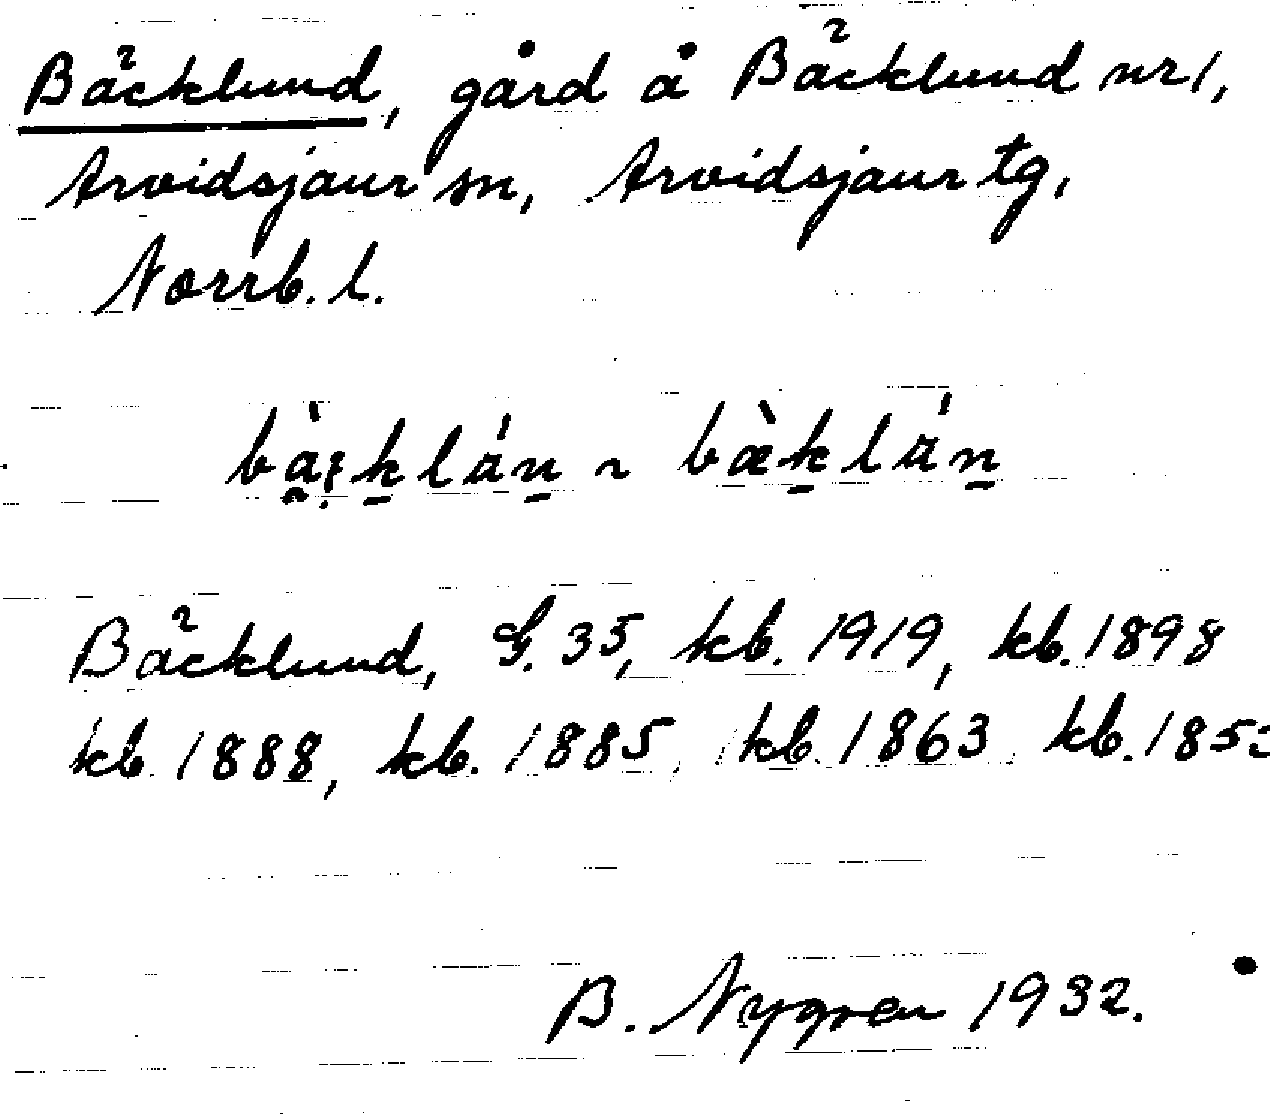 Bäcklund, gård å Bäcklund nr 1,
Arvidsjaur sn, Arvidsjaur tg,
Norrb. l.
Bäcklund, G. 35, kb. 1919, kb. 1898
kb. 1888, kb. 1885, kb. 1863, kb.
B. Nygren 1932.